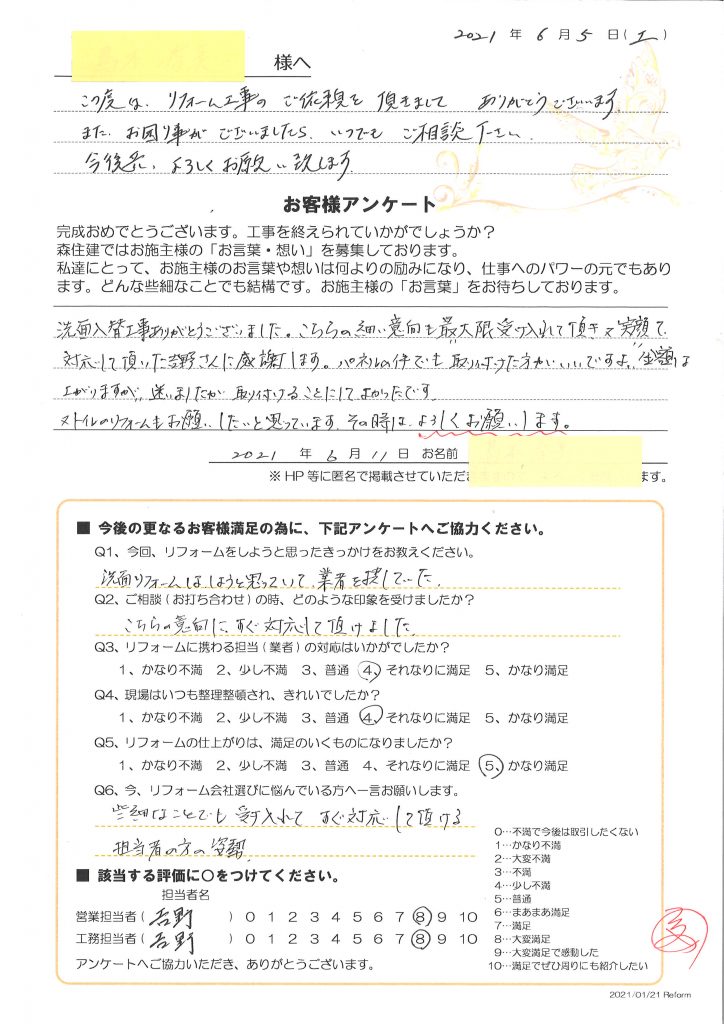 2021 年 6 月 5 日 (土)
様へ
この度は、リフォーム工事の ご依頼を 頂きまして ありがとうございます。
また、お困り事が ございましたら、いつでも ご相談 下さい。
今後共、よろしくお願い致します。
お客様アンケート
完成おめでとうございます。工事を終えられていかがでしょうか？
森住建ではお施主様の「お言葉・想い」を募集しております。
私達にとって、お施主様のお言葉や想いは何よりの励みになり、仕事へのパワーの元でもあり
ます。どんな些細なことでも結構です。お施主様の「お言葉」をお待ちしております。
洗面入替工事ありがとうございました。こちらの細い意向も最大限受け入れて頂き又笑顔で
対応して頂いた吉野さんに感謝します。パネルの件でも"取り付けた方がいいですよ。金額は
上がりますが"迷いましたが取り付けることにしてよかったです。
又トイレのリフォームもお願いしたいと思っています。その時は、よろしくお願いします。
2021 年 6 月 11 日 お名前
※HP 等に匿名で掲載させていただき ます。
■ 今後の更なるお客様満足の為に、下記アンケートへご協力ください。
Q1、今回、リフォームをしようと思ったきっかけをお教えください。
洗面リフォームはしようと思っていて、業者を探していた。
Q2、ご相談（お打ち合わせ）の時、どのような印象を受けましたか？
こちらの意向に、すぐ対応して頂けました。
Q3、リフォームに携わる担当（業者）の対応はいかがでしたか？
1、かなり不満 2、少し不満 3、普通 4、それなりに満足 5、かなり満足
Q4、現場はいつも整理整頓され、きれいでしたか？
1、かなり不満 2、少し不満 3、普通 4、それなりに満足 5、かなり満足
Q5、リフォームの仕上がりは、満足のいくものになりましたか？
1、かなり不満 2、少し不満 3、普通 4、それなりに満足 5、かなり満足
Q6、今、リフォーム会社選びに悩んでいる方へ一言お願いします。
些細なことでも 受け入れて すぐ対応して頂ける
担当者の方の姿勢。
■ 該当する評価に○をつけてください。
担当者名
営業担当者（ 吉野 ）0 1 2 3 4 5 6 7 8 9 10
工務担当者（ 吉野 ）0 1 2 3 4 5 6 7 8 9 10
アンケートへご協力いただき、ありがとうございます。
0…不満で今後は取引したくない
1…かなり不満
2…大変不満
3…不満
4…少し不満
5…普通
6…まあまあ満足
7…満足
8…大変満足
9…大変満足で感動した
10…満足でぜひ周りにも紹介したい
2021/01/21 Reform